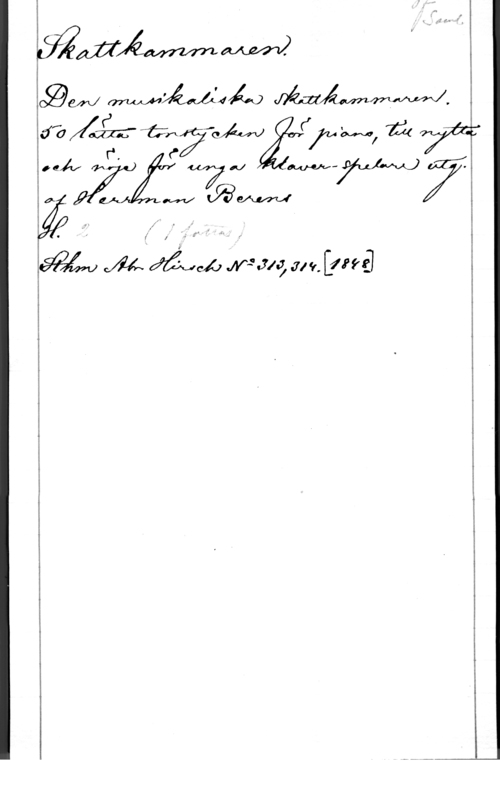 Saml.
Skattkammaren.
Den musikaliska skattkammaren.
50 lätta tonstycken för piano, till nytta
och nöje för unga klaver-spelare utg.
af Herrman Berens
H. 2 (1 fattas)
Sthm Abr Hirsch Nº 313, 314. [1848]